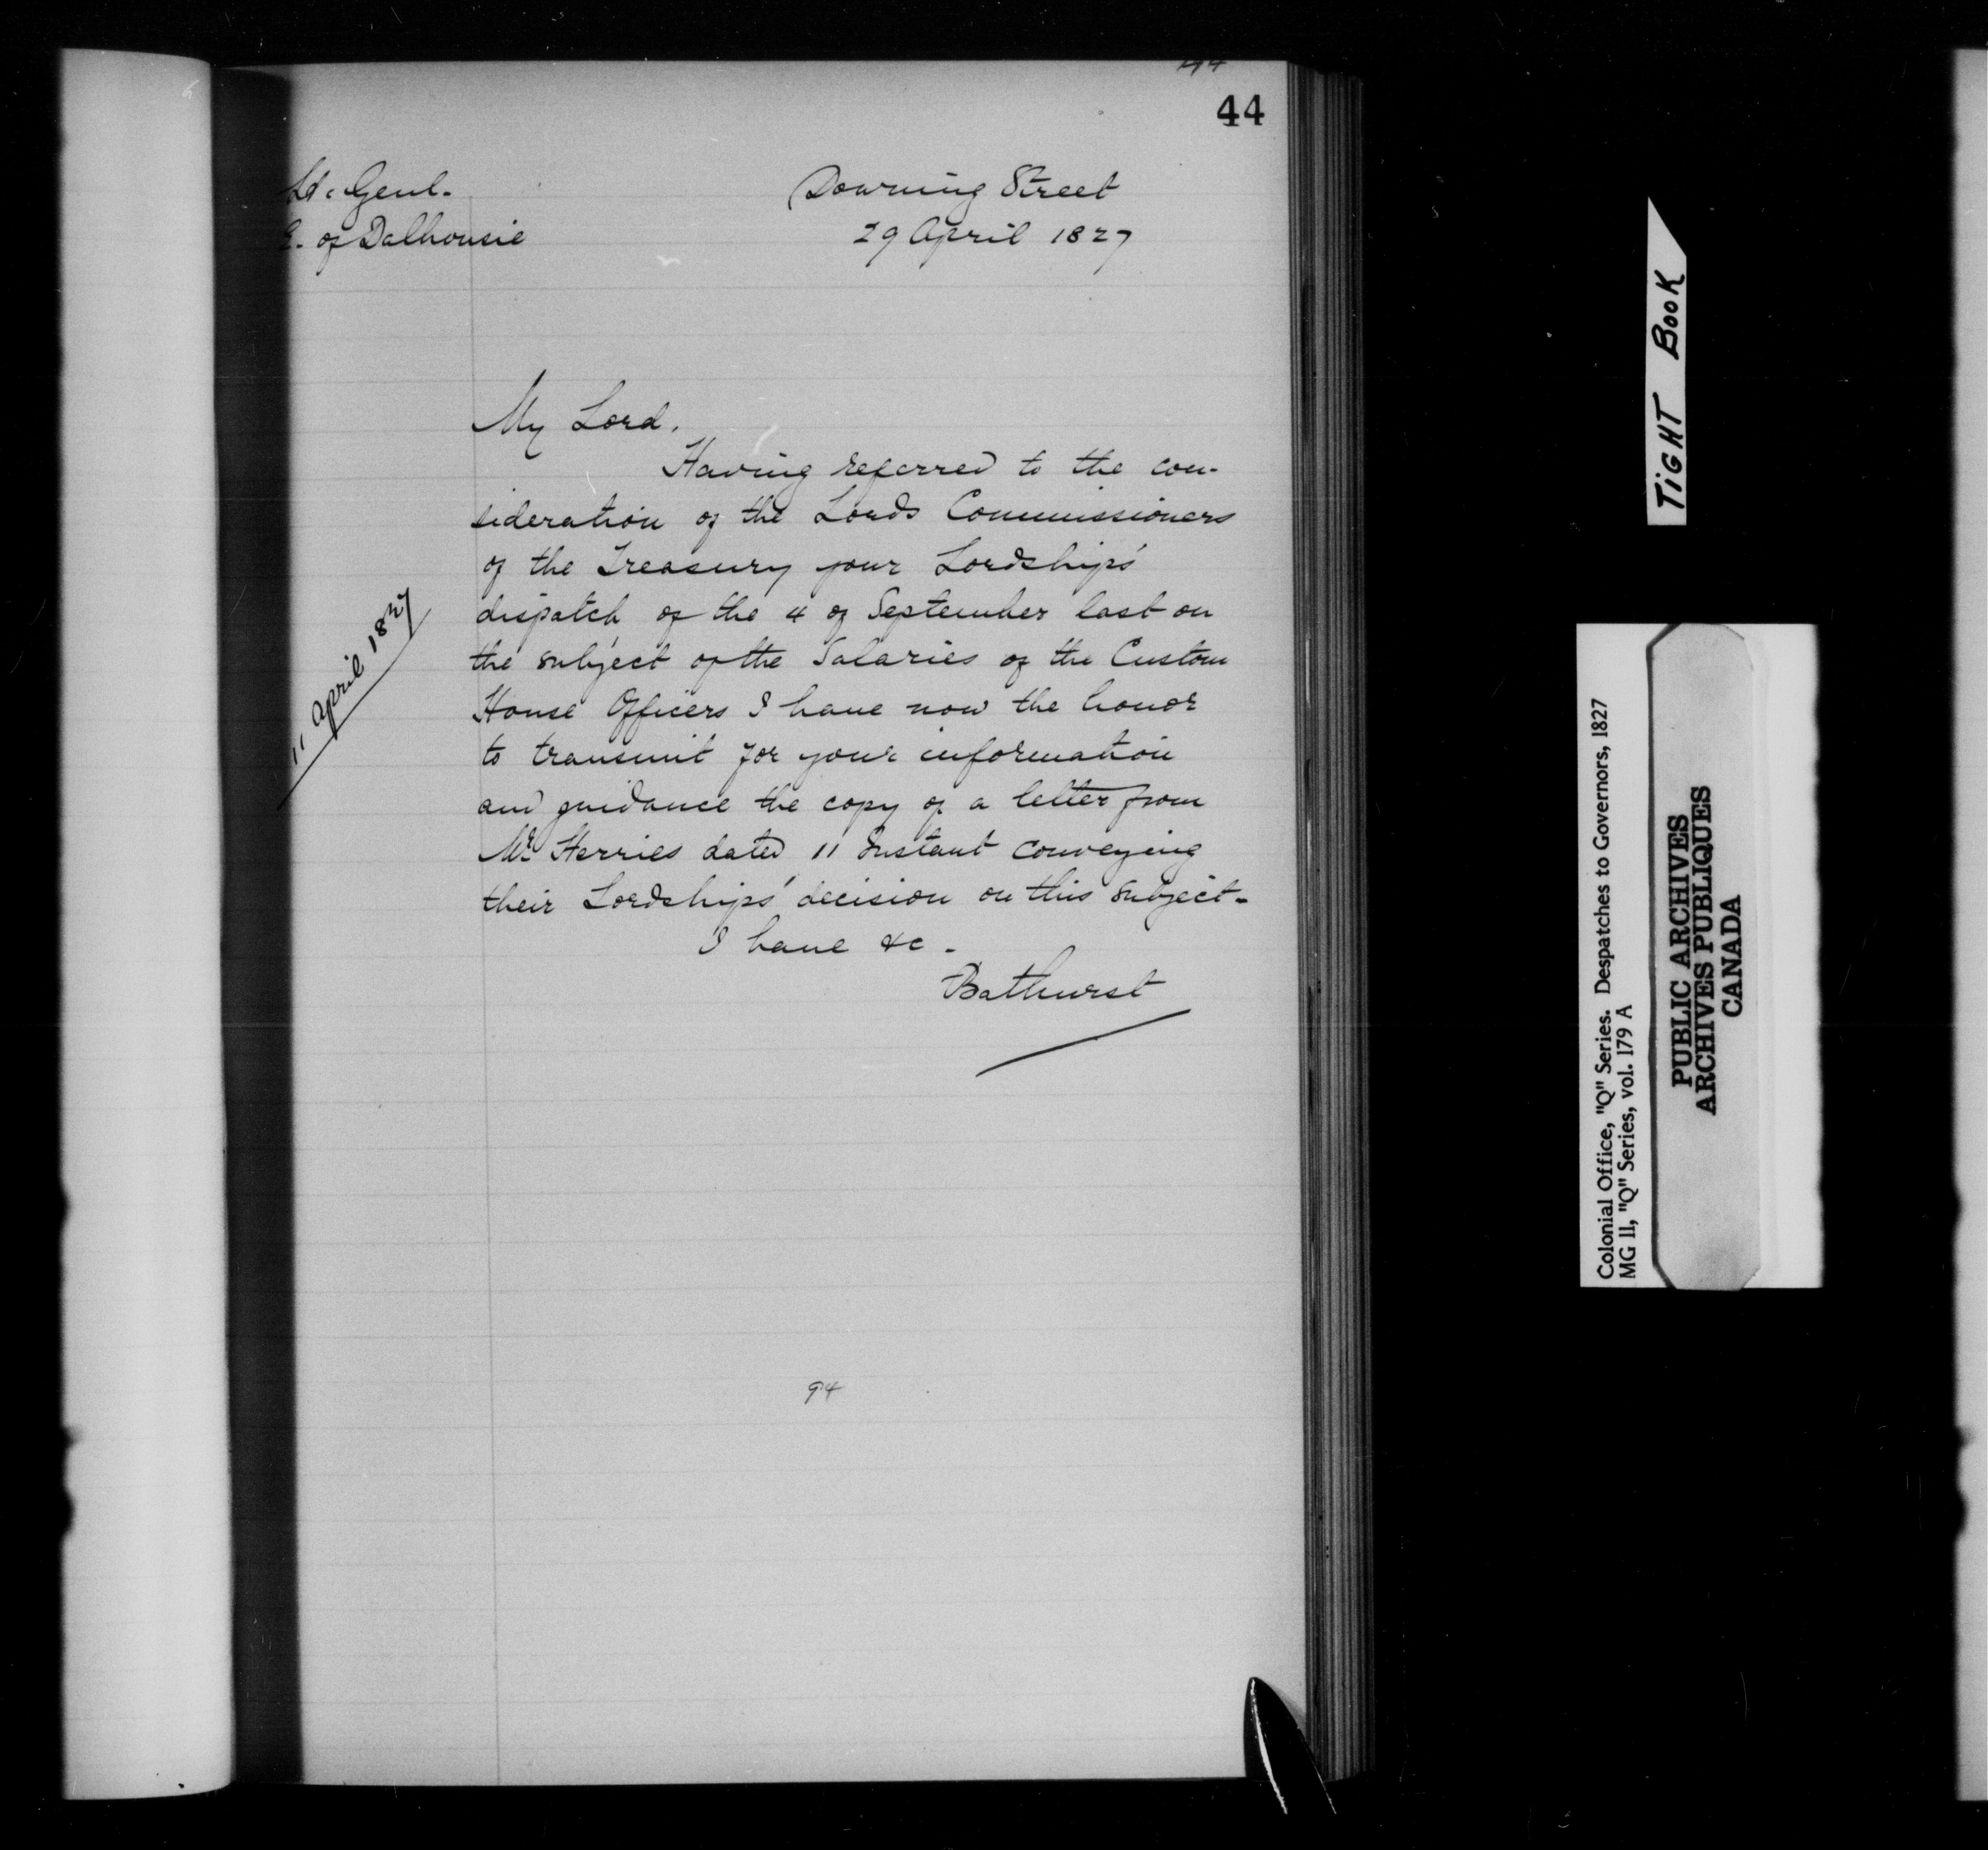 44
Lt. Genl.
E. of Dalhousie
Downing Street
29 April 1827
My Lord,
Having referred to the con-
sideration of the Lords Commissioners
of the Treasury your Lordship's
dispatch of the 4 of September last on
the subject of the Salaries of the Custom
House Officers I have now the honor
to transmit for your information
and guidance the copy of a letter from
Mr Herries dated 11 Instant conveying
their Lordships' decision on this subject-
I have &c -
Bathurst
11 April 1827
94
TIGHT BOOK
Colonial Office, "Q" Series. Despatches to Governors, 1827
MG 11, "Q" Series, vol. 179 A
PUBLIC ARCHIVES
ARCHIVES PUBLIQUES
CANADA